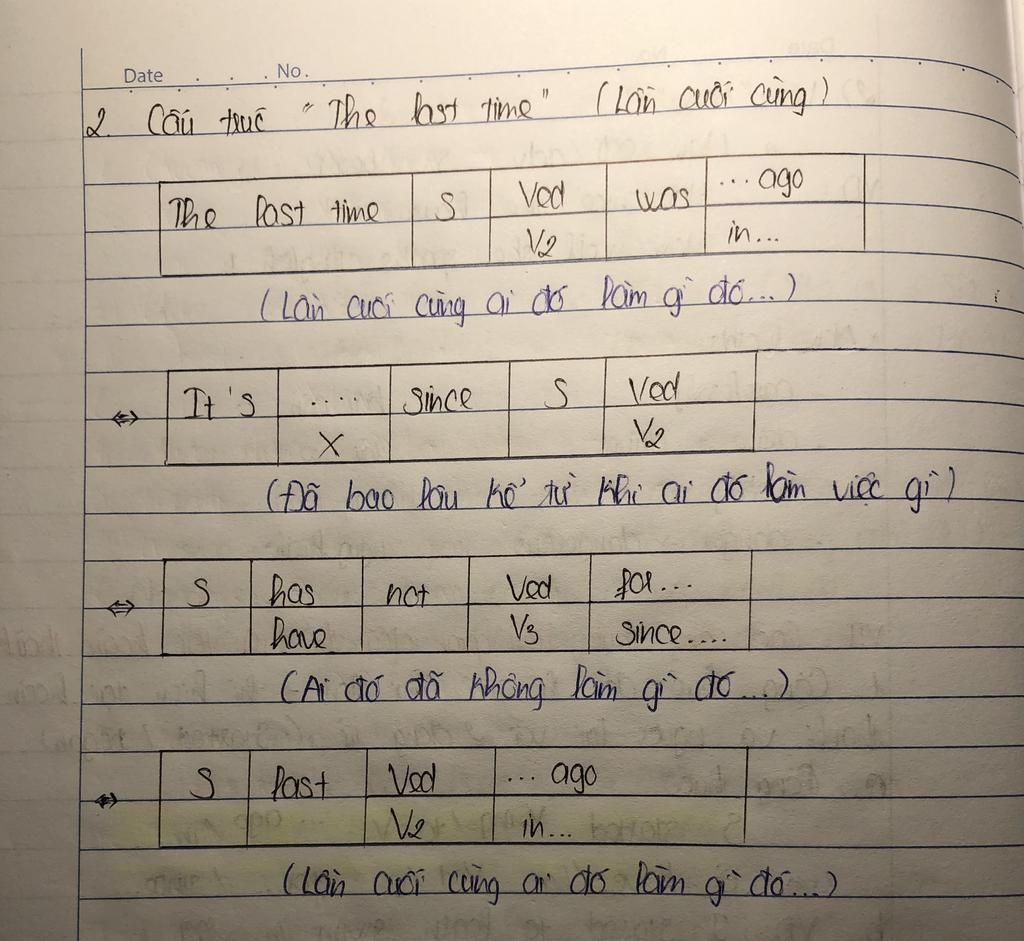 Date . . . No.
2. Cấu trúc "The last time" (Lần cuối cùng)
The last time S Ved was ... ago
V2 in...
(Lần cuối cùng ai đó làm gì đó...)
⇔ It's ..... since S Ved
X V2
(Đã bao lâu kể từ khi ai đó làm việc gì)
⇔ S has not Ved for...
have V3 since....
(Ai đó đã không làm gì đó...)
⇔ S last Ved ... ago
V2 in...
(Lần cuối cùng ai đó làm gì đó...)